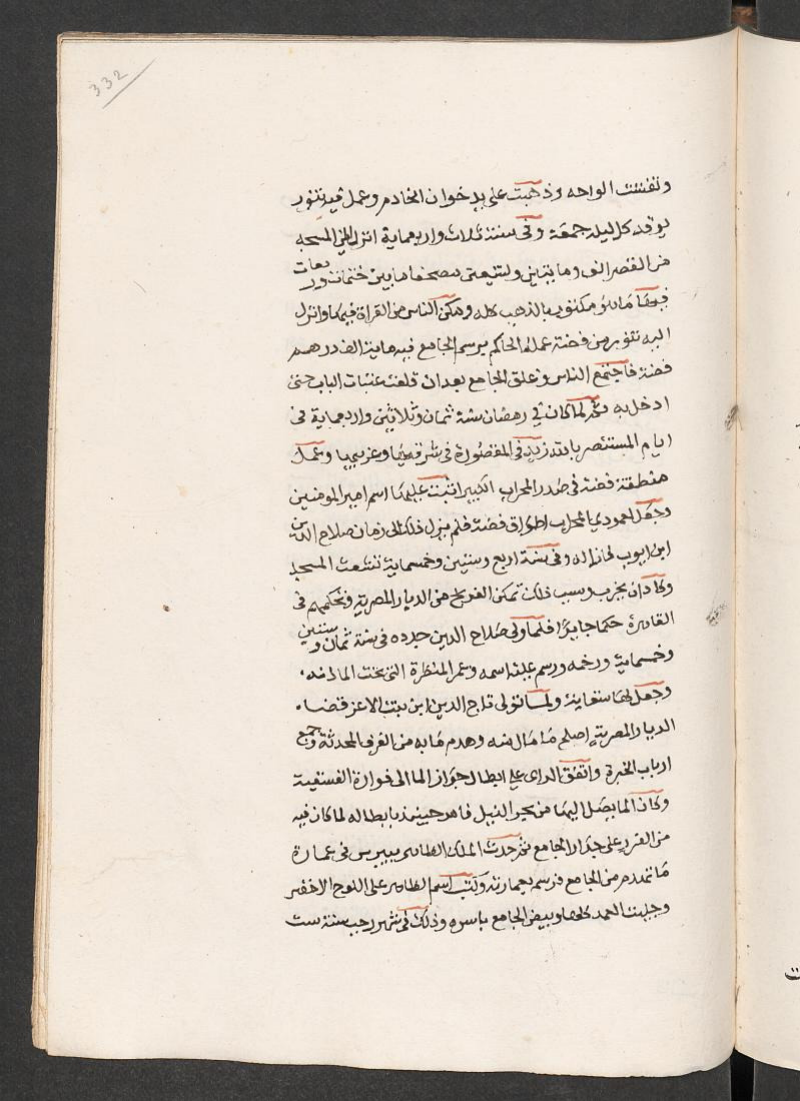 332
ونقشت الواحه وذهبت على يد خوان الخادم وعمل فيه تنور
يوقد كل ليله جمعة وفى سنة ثلاث واربعماية انزل الي المسجد
من القصر الف ومايتين وتسعين مصحفا ما بين ختمات وربعات
فيها ما هو مكتوب بالذهب كله ومكن الناس من القراة فيها وانزل
اليه تنور من فضة عمله الحاكم برسم الجامع فيه ماية الف درهم
فضة فاجتمع الناس وعلق الجامع بعد ان قلعت عتبات الباب حتى
ادخل به ثم لما كان في رمضان سنة ثمان وثلاثين واربعماية في
ايام المستنصر بالله زيد فى المقصورة فى شرقيها وغربيها وعمل
منطقة فضة فى صدر المحراب الكبير اثبت عليها اسم امير المومنين
وجعل لعمودي المحراب اطواق فضة فلم يزل ذلك الى زمان صلاح الدين
ابن ايوب فازاله وفى سنة اربع وستين وخمسماية تشعث المسجد
وكاد ان يخرب وسبب ذلك تمكن الفرنج من الديار المصرية وتحكمهم فى
القاهرة حكما جايرا فلما ولى صلاح الدين جدده فى سنة ثمان وستين
وخمسماية ورخمه ورسم عليه اسمه وعمر المنظرة التى تحت الماذنه .
وجعل لها سقاية ولما تولى تاج الدين ابن بنت الاعز قضا .
الديار المصرية اصلح ما مال منه وهدم ما به من الغرف المحدثة وجمع
ارباب الخبرة واتفق الراى على ابطال جواز الما الى فوارة الفسقية
وكان الما يصل اليها من بحر النيل فامر حينيذ بابطاله لما كان فيه
من الضرر على جدار الجامع ثم حدث الملك الظاهر بيبرس فى عمارة
ما تهدم من الجامع فرسم بعمارته وكتب اسم الظاهر على اللوح الاخضر
وجليت العمد كلها وبيض الجامع باسره وذلك فى شهر رجب سنة ست